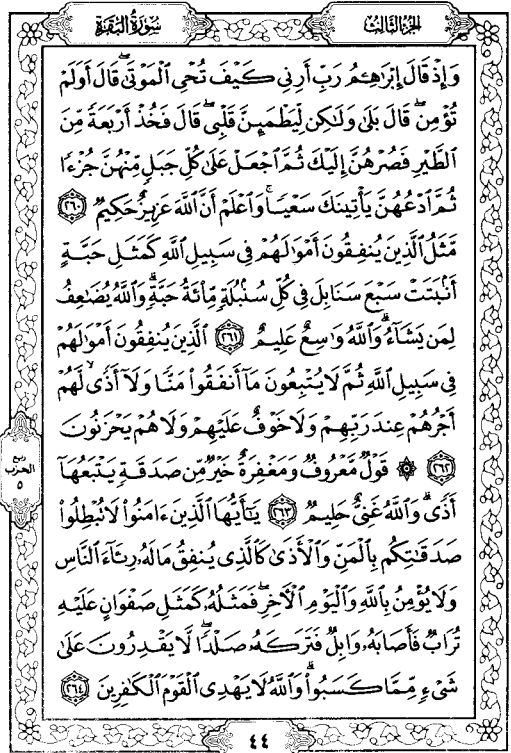 الجزء الثالث
سورة البقرة
وَإِذْ قَالَ إِبْرَاهِـۧمُ رَبِّ أَرِنِي كَيْفَ تُحْيِ الْمَوْتَىٰ ۖ قَالَ أَوَلَمْ
تُؤْمِن ۖ قَالَ بَلَىٰ وَلَٰكِن لِّيَطْمَئِنَّ قَلْبِي ۖ قَالَ فَخُذْ أَرْبَعَةً مِّنَ
الطَّيْرِ فَصُرْهُنَّ إِلَيْكَ ثُمَّ اجْعَلْ عَلَىٰ كُلِّ جَبَلٍ مِّنْهُنَّ جُزْءًا
ثُمَّ ادْعُهُنَّ يَأْتِينَكَ سَعْيًا ۚ وَاعْلَمْ أَنَّ اللَّهَ عَزِيزٌ حَكِيمٌ ٢٦٠
مَّثَلُ الَّذِينَ يُنفِقُونَ أَمْوَٰلَهُمْ فِي سَبِيلِ اللَّهِ كَمَثَلِ حَبَّةٍ
أَنۢبَتَتْ سَبْعَ سَنَابِلَ فِي كُلِّ سُنۢبُلَةٍ مِّا۟ئَةُ حَبَّةٍ ۗ وَاللَّهُ يُضَٰعِفُ
لِمَن يَشَآءُ ۗ وَاللَّهُ وَٰسِعٌ عَلِيمٌ ٢٦١ الَّذِينَ يُنفِقُونَ أَمْوَٰلَهُمْ
فِي سَبِيلِ اللَّهِ ثُمَّ لَا يُتْبِعُونَ مَآ أَنفَقُوا مَنًّا وَلَآ أَذًى ۙ لَّهُمْ
أَجْرُهُمْ عِندَ رَبِّهِمْ وَلَا خَوْفٌ عَلَيْهِمْ وَلَا هُمْ يَحْزَنُونَ
٢٦٢ ۞ قَوْلٌ مَّعْرُوفٌ وَمَغْفِرَةٌ خَيْرٌ مِّن صَدَقَةٍ يَتْبَعُهَآ
أَذًى ۗ وَاللَّهُ غَنِيٌّ حَلِيمٌ ٢٦٣ يَٰٓأَيُّهَا الَّذِينَ ءَامَنُوا لَا تُبْطِلُوا
صَدَقَٰتِكُم بِالْمَنِّ وَالْأَذَىٰ كَالَّذِي يُنفِقُ مَالَهُۥ رِئَآءَ النَّاسِ
وَلَا يُؤْمِنُ بِاللَّهِ وَالْيَوْمِ الْآخِرِ ۖ فَمَثَلُهُۥ كَمَثَلِ صَفْوَانٍ عَلَيْهِ
تُرَابٌ فَأَصَابَهُۥ وَابِلٌ فَتَرَكَهُۥ صَلْدًا ۖ لَّا يَقْدِرُونَ عَلَىٰ
شَيْءٍ مِّمَّا كَسَبُوا ۗ وَاللَّهُ لَا يَهْدِي الْقَوْمَ الْكَٰفِرِينَ ٢٦٤
ربع
الحزب
٥
٤٤